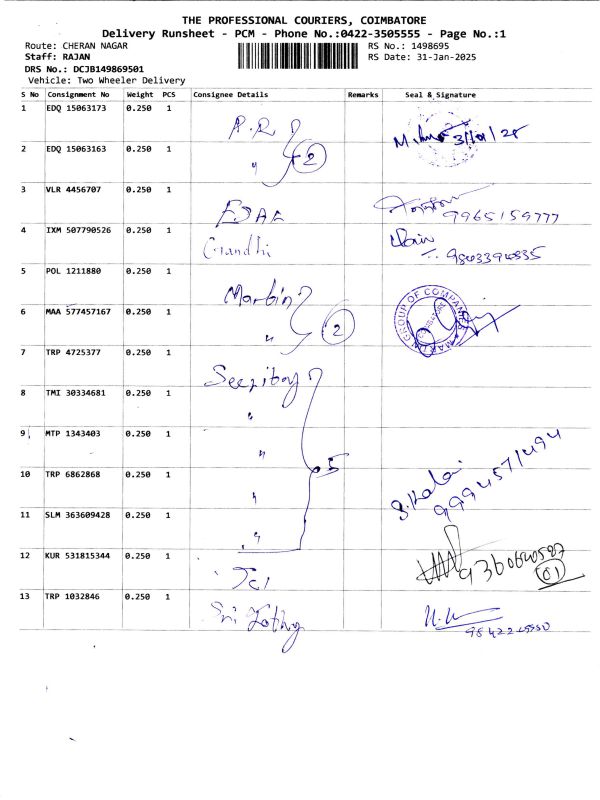 THE PROFESSIONAL COURIERS, COIMBATORE
Delivery Runsheet - PCM - Phone No.:0422-3505555 - Page No.:1
Route: CHERAN NAGAR RS No.: 1498695
Staff: RAJAN RS Date: 31-Jan-2025
DRS No.: DCJB149869501
Vehicle: Two Wheeler Delivery
S No Consignment No Weight PCS Consignee Details Remarks Seal & Signature
1 EDQ 15063173 0.250 1
2 EDQ 15063163 0.250 1 " 2
3 VLR 4456707 0.250 1 9965159777
4 IXM 507790526 0.250 1 Gandhi
5 POL 1211880 0.250 1
6 MAA 577457167 0.250 1 " 2 GROUP OF COMPANIES
7 TRP 4725377 0.250 1
8 TMI 30334681 0.250 1 "
9 MTP 1343403 0.250 1 "
10 TRP 6862868 0.250 1 " 5
11 SLM 363609428 0.250 1 "
12 KUR 531815344 0.250 1 01
13 TRP 1032846 0.250 1 Sri Jothy